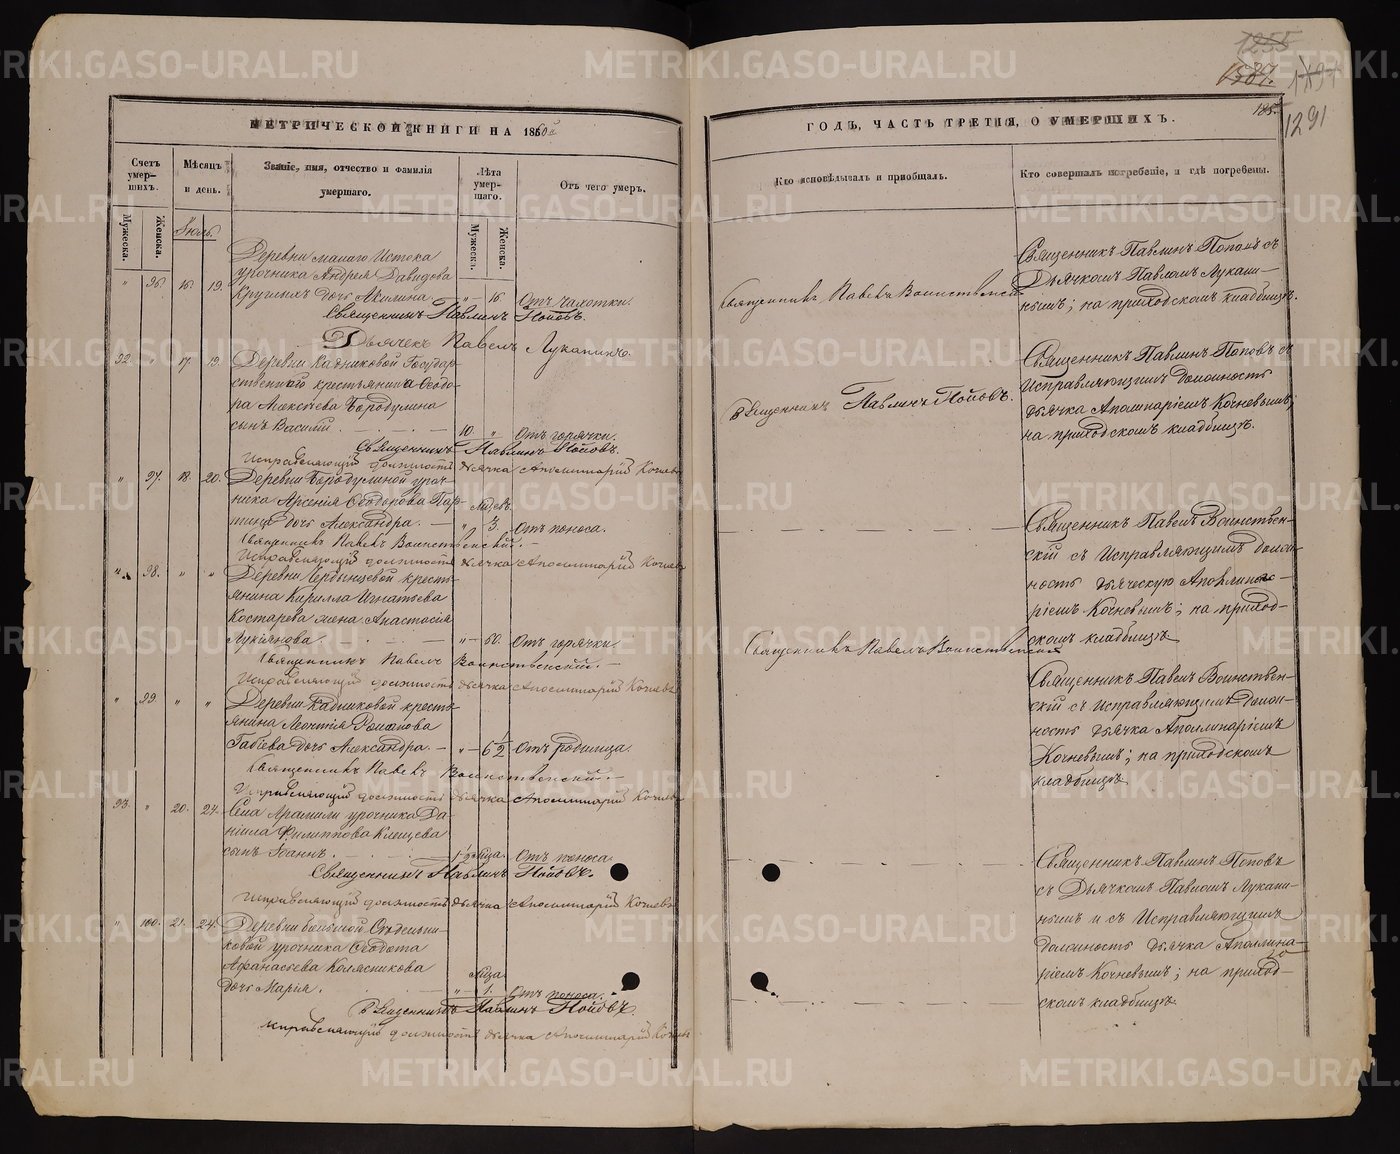 1255
1587.
1291
185.
МЕТРИЧЕСКОЙ КНИГИ НА 1860й
ГОДЪ, ЧАСТЬ ТРЕТІЯ, О УМЕРШИХЪ.
Счетъ умер-шихъ.
Мужеска.
Женска.
Мѣсяцъ и день.
Званіе, имя, отчество и фамилія умершаго.
Лѣта умер-шаго.
Мужеска.
Женска.
Отъ чего умеръ.
Кто исповѣдывалъ и пріобщалъ.
Кто совершалъ погребеніе, и гдѣ погребены.
Іюль.
Деревни малаго Истока
урочника Андрея Давидова
" 96. 16. 19. Круглыхъ дочь Акилина. " 16. Отъ чахотки.
Священникъ Павлинъ Поповъ.
Дьячекъ Павелъ Лукапинъ.
Священникъ Павелъ Воинственскій
Священникъ Павлинъ Поповъ съ
Дьячкомъ Павломъ Лукани-
нымъ; на приходскомъ кладбищѣ.
92. " 17. 19. Деревни Кадниковой Государ-
ственнаго крестьянина Ѳеодо-
ра Алексѣева Бородулина
сынъ Василій. 10. " Отъ горячки.
Священникъ Павлинъ Поповъ.
Исправляющій должность дьячка Аполлинарій Кочневъ
Священникъ Павлинъ Поповъ.
Священникъ Павлинъ Поповъ съ
Исправляющимъ должность
дьячка Апоминаріемъ Кочневымъ;
на приходскомъ кладбищѣ.
" 97. 18. 20. Деревни Бородулиной уроч-
ника Арсенія Ѳеодорова Пар-
тина дочь Александра. " 3. мѣсяц. Отъ поноса.
Священникъ Павелъ Воинственскій.
Исправляющій должность дьячка Аполлинарій Кочневъ
Священникъ Павелъ Воинствен-
скій съ Исправляющимъ должн-
ность дьяческую Аполлина-
ріемъ Кочневымъ; на приход-
скомъ кладбищѣ
" 98. " " Деревни Чердынцевой кресть-
янина Кирилла Игнатьева
Костарева жена Анастасія
Лукіянова. " 60. Отъ горячки.
Священникъ Павелъ Воинственскій.
Исправляющій должность дьячка Аполлинарій Кочневъ
Священникъ Павелъ Воинственскій
Священникъ Павелъ Воинствен-
скій съ Исправляющимъ должн-
ность дьячка Аполлинаріемъ
Кочневымъ; на приходскомъ
кладбищѣ.
" 99. " " Деревни Кадниковой кресть-
янина Леонтія Романова
Габіева дочь Александра. " 6 1/2 Отъ родимца.
Священникъ Павелъ Воинственскій.
Исправляющій должность дьячка Аполлинарій Кочневъ
93. " 20. 24. Села Арамили урочника Да-
ніила Филиппова Клещева
сынъ Іоаннъ. 1 1/2 мѣсяца. Отъ поноса
Священникъ Павлинъ Поповъ.
Исправляющій должность дьячка Аполлинарій Кочневъ
Священникъ Павлинъ Поповъ
съ Дьячкомъ Павломъ Лукани-
нымъ и съ Исправляющимъ
должность дьячка Аполлина-
ріемъ Кочневымъ; на приход-
скомъ кладбищѣ
" 100. 21. 24. Деревни большой Сѣдельни-
ковой урочника Ѳеодота
Афанасьева Колясникова
дочь Марія. " 1. мѣсяца Отъ поноса.
Священникъ Павлинъ Поповъ.
Исправляющій должность дьячка Аполлинарій Кочневъ
METRIKI.GASO-URAL.RU